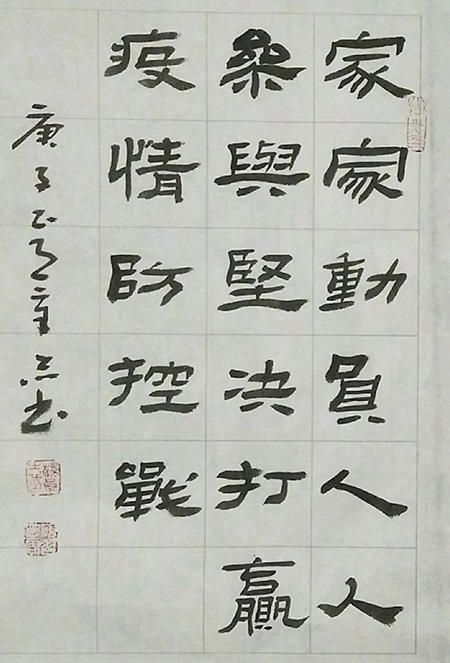 家家動員人人
參與堅决打贏
疫情防控戰
庚子正月